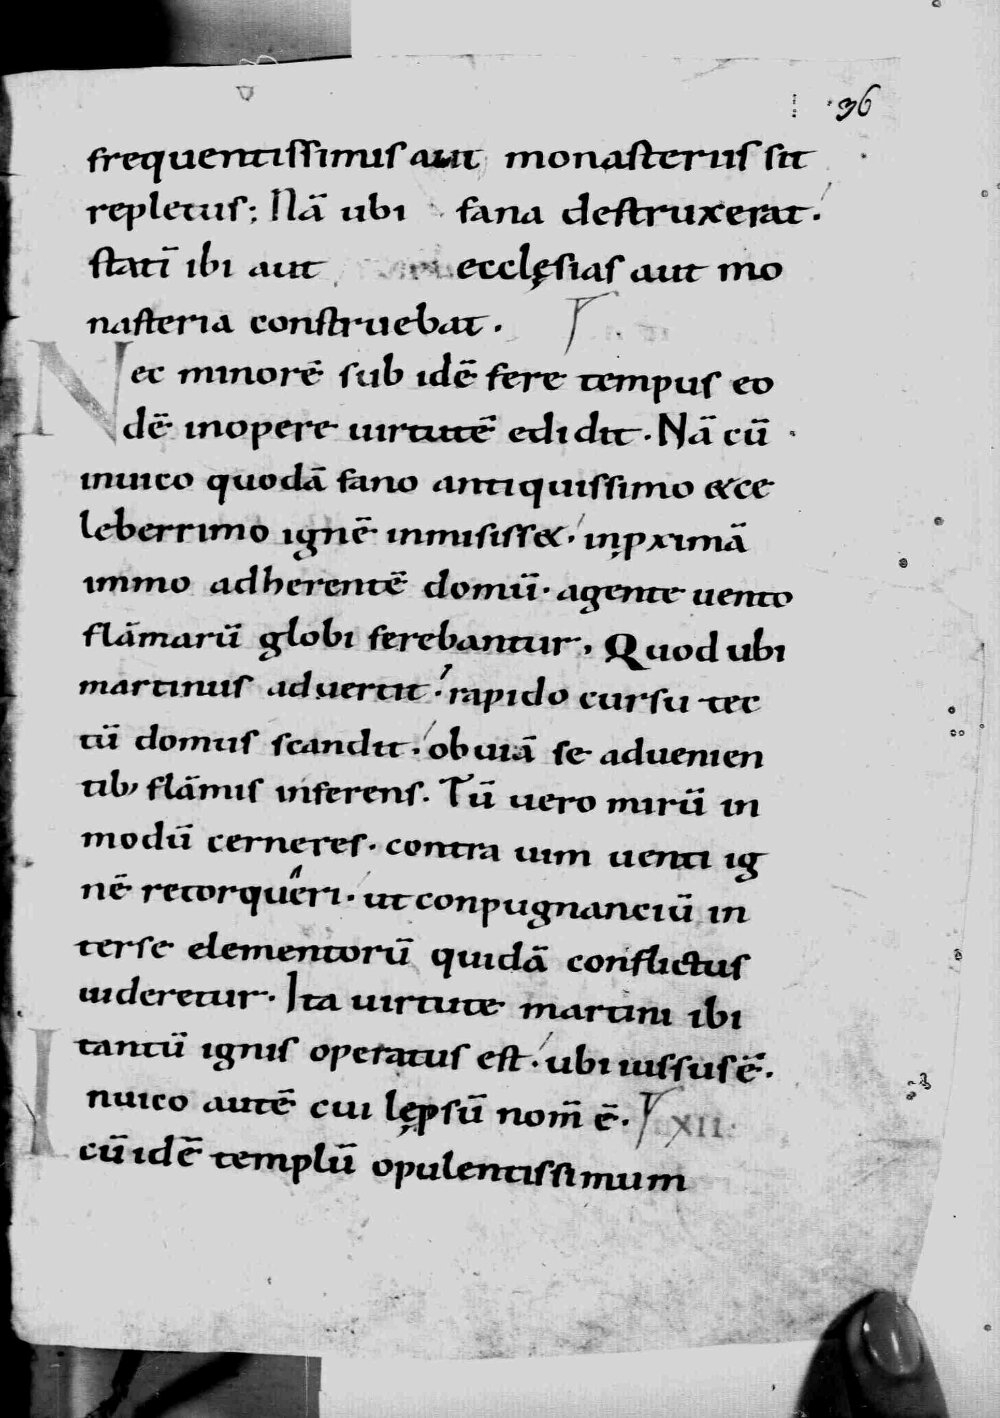 36
frequentissimis aut monasteriis sit
repletus; Nā ubi fana destruxerat.
statī ibi aut ecclęsias aut mo
nasteria construebat.
Nec minorē sub idē fere tempus eo
dē inopere uirtutē edidit. Nā cū
inuico quodā fano antiquissimo & ce
leberrimo ignē inmisiss&. inpximā
immo adherentē domū. agente uento
flāmarū globi ferebantur. Quod ubi
martinus aduertit. rapido cursu tec
tū domus scandit. obuiā se aduenien
tib; flāmis inferens. Tū uero mirū in
modū cerneres. contra uim uenti ig
nē retorqueri. ut conpugnanciū in
terse elementorū quidā conflictus
uideretur. Ita uirtute martini ibi
tantū ignis operatus est. ubi iussus ē.
Inuico autē cui lępsū nom̄ ē. XII.
cū idē templū opulentissimum